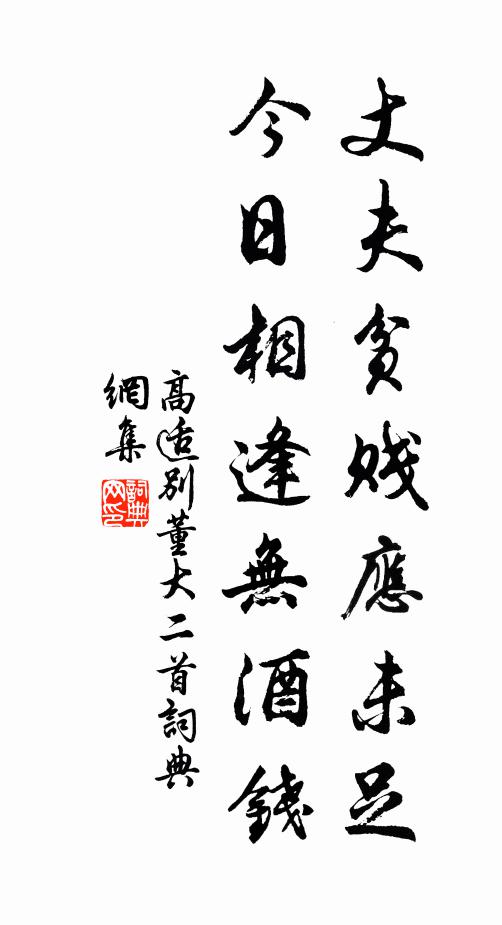 丈夫貧賤應未足
今日相逢無酒錢
高适別董大二首詞典
網集
詞典
网印